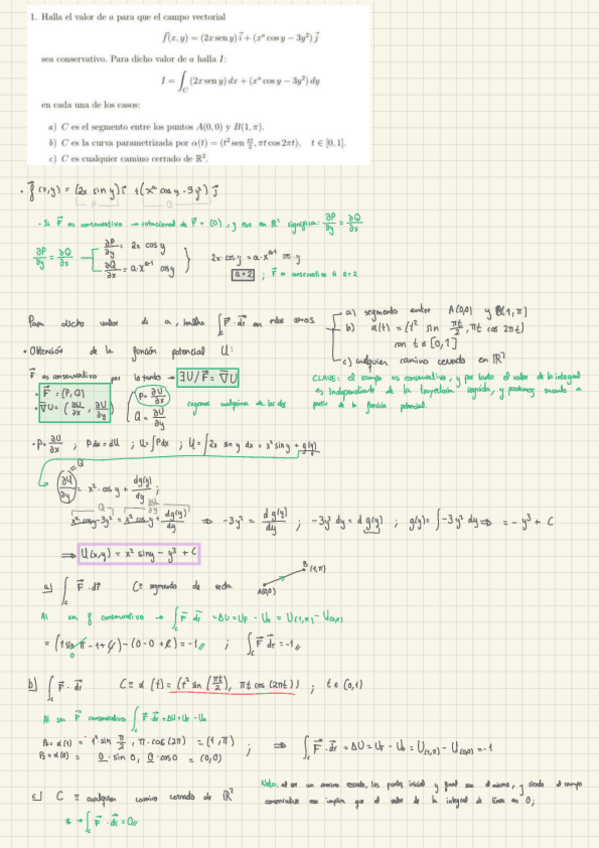 1. Halla el valor de a para que el campo vectorial
f(x, y) = (2x sen y) i + (xᵃ cos y − 3y²) j
sea conservativo. Para dicho valor de a halla I:
I = ∫_C (2x sen y) dx + (xᵃ cos y − 3y²) dy
en cada una de los casos:
a) C es el segmento entre los puntos A(0,0) y B(1, π).
b) C es la curva parametrizada por α(t) = (t² sen πt/2, πt cos 2πt), t ∈ [0, 1].
c) C es cualquier camino cerrado de ℝ².
• f(x,y) = (2x sin y) i + (xᵃ cos y - 3y²) j
P Q
- Si F es conservativo → rotacional de F = (0), y eso en ℝ² significa: ∂P/∂y = ∂Q/∂x
∂P/∂y = ∂Q/∂x
∂P/∂y = 2x cos y
∂Q/∂x = a·xᵃ⁻¹ cos y
2x·cos y = a·xᵃ⁻¹ cos y
a=2 ; F es conservativo si a=2
Para dicho valor de a, halla ∫_C F·dr en estos casos
a) segmento entre A(0,0) y B(1,π)
b) α(t) = (t² sin πt/2, πt cos 2πt)
con t ∈ [0,1]
c) cualquier camino cerrado en ℝ²
• Obtención de la función potencial U:
F es conservativo por lo tanto → ∃U/F = ∇U
CLAVE: el campo es conservativo, y por tanto el valor de la integral
es independiente de la trayectoria seguida, y podemos hacerlo a
partir de la función potencial.
• F = (P,Q)
• ∇U = (∂U/∂x, ∂U/∂y)
P = ∂U/∂x
Q = ∂U/∂y
cogemos cualquiera de las dos
• P = ∂U/∂x ; P dx = dU ; U = ∫P dx ; U = ∫2x sin y dx = x² sin y + g(y)
∂U/∂y = x²·cos y + dg(y)/dy ;
= Q
Q ∂U/∂y
x² cos y - 3y² = x² cos y + dg(y)/dy ⇒ -3y² = dg(y)/dy ; -3y² dy = dg(y) ; g(y) = ∫-3y² dy ⇒ = -y³ + C
⇒ U(x,y) = x² sin y - y³ + C
a) ∫_C F·dr C ≡ segmento de recta
A(0,0) B (1,π)
Al ser f conservativo → ∫_C F·dr = ΔU = U_F - U_0 = U(1,π) - U(0,0)
b) ∫_C F·dr C ≡ α(t) = (t² sin (πt/2), πt cos (2πt)) ; t ∈ [0,1]
Al ser F conservativo ∫_C F·dr = ΔU = U_F - U_0
= 1² sin π/2, π·cos (2π) = (1,π)
= 0·sin 0, 0·cos 0 = (0,0)
; ⇒ ∫_C F·dr = ΔU = U_F - U_0 = U(1,π) - U(0,0) = -1
c) C ≡ cualquier camino cerrado de ℝ²
Nota: al ser un camino cerrado, los puntos inicial y final son el mismo, y siendo el campo
conservativo eso implica que el valor de la integral de línea es 0;
* → ∫_C F·dr = 0